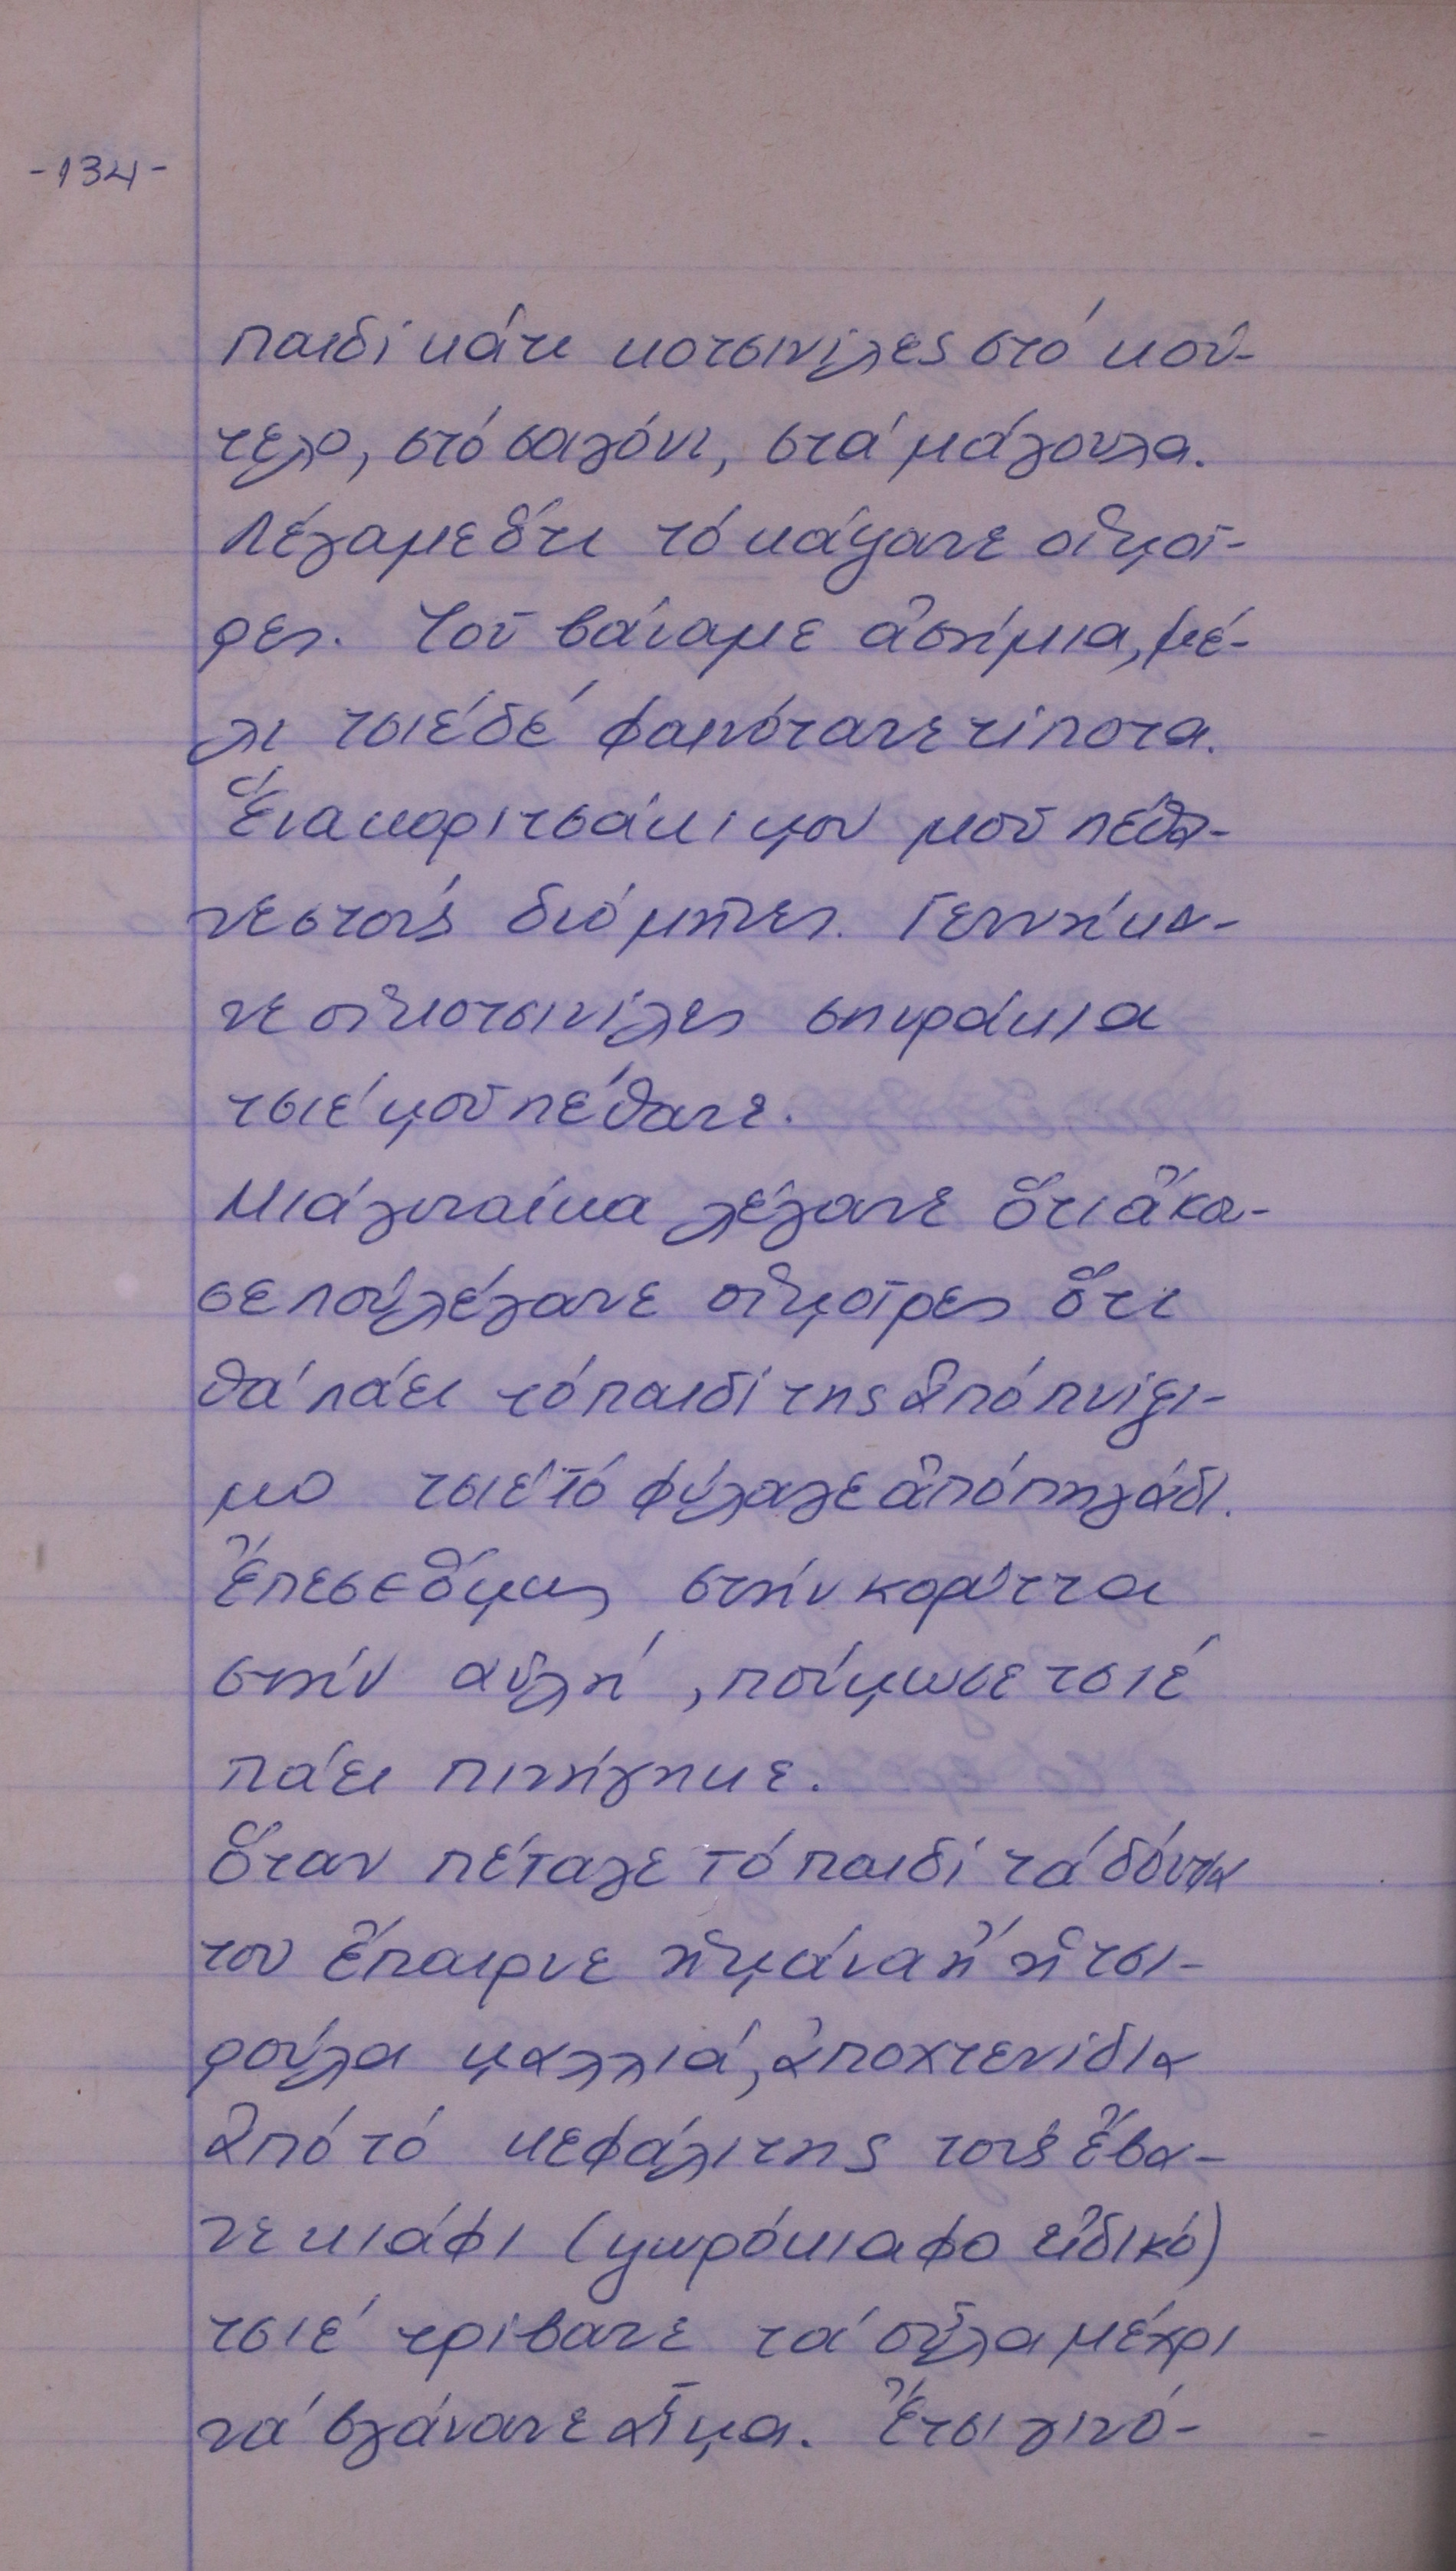 -134-
παιδί κάτι κοτσινίλες στό κού-
τελο, στό σαγόνι, στά μάγουλα.
Λέγαμε ὅτι τό κάψανε οἱ μοῖ-
ρες. Τοῦ βάναμε ἀσήμια, μέ-
λι τσιέ δέ φαινότανε τίποτα.
Ἕνα κοριτσάκι μου μοῦ πέθα-
νε στούς διό μῆνες. Γεννήκα-
νε οἱ κοτσινίλες σπυράκια
τσιέ μοῦ πέθανε.
Μιά γυναίκα λέγανε ὅτι ἄκου-
σε πού λέγανε οἱ μοῖρες ὅτι
θά πάει τό παιδί της ἀπό πνίξι-
μο τσιέ τό φύλαγε ἀπό πηγάδι.
Ἔπεσε ὅμως στήν κορύττα
στήν αὐλή, ποίμωσε τσιέ
πάει πινήγηκε.
Ὅταν πέταγε τό παιδί τά δόντια
του ἔπαιρνε ἡ μάνα ἤ ἡ τσι-
ρούλα μαλλιά, ἀποχτενίδια
ἀπό τό κεφάλι της τούς ἔβα-
νε κιάφι (ψωρόκιαφο εἰδικό)
τσιέ τρίβανε τά οὖλα μέχρι
νά βγάνανε αἷμα. Ἔτσι γινό-